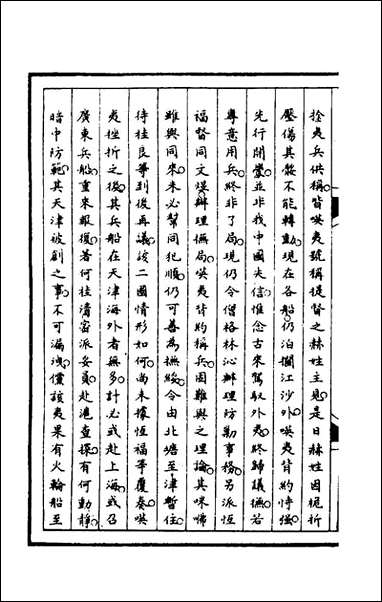 捡夷兵供稱皆㗎夷號稱提督之赫姓主見是日赫姓因桅折
壓傷其骽不能轉動現在各船仍泊攔江沙外㗎夷背約恃强
先行開釁並非我中國失信惟念古來駕馭外夷終歸議撫若
專意用兵終非了局現仍令僧格林沁辦理防勦事務另派恆
福督同文煜辦理撫局㗎夷背約稱兵固難與之理論其咪𠵽
雖與同來未必幫同犯順仍可善為撫綏令由北塘至津暫住
待桂良等到後再議該二國情形如何尚未據恆福等覆奏㗎
夷挫折之後其兵船在天津海外者無多計必或赴上海或召
廣東兵船重來報復著何桂清密派妥員赴滬查探有何動靜
暗中防範其天津被創之事不可漏洩儻該夷果有火輪船至